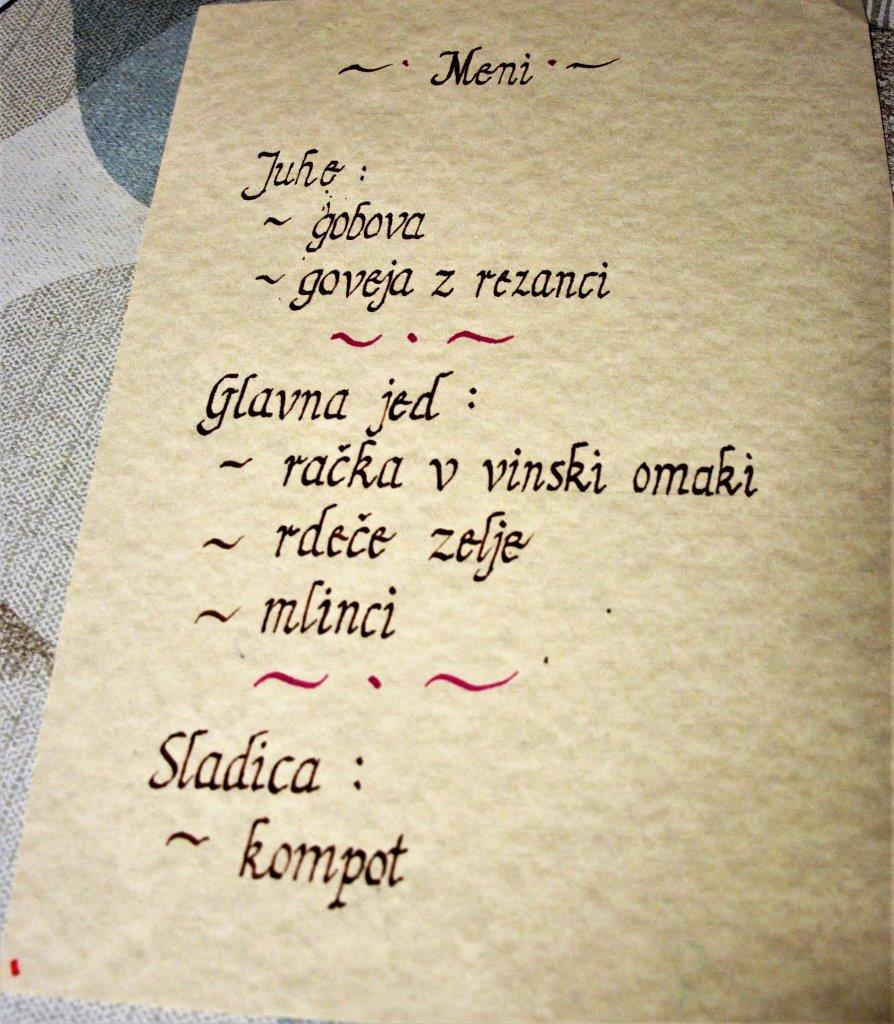 ~ · Meni · ~
Juhe :
~ gobova
~ goveja z rezanci
~ · ~
Glavna jed :
~ račka v vinski omaki
~ rdeče zelje
~ mlinci
~ · ~
Sladica :
~ kompot